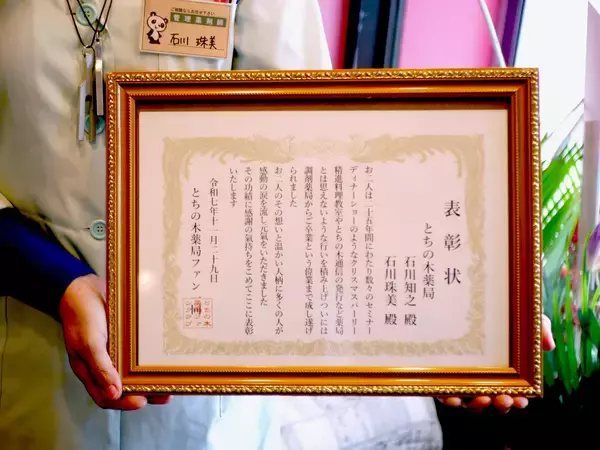 ご相談ならお任せ下さい
管理薬剤師
石川 珠美
表彰状
とちの木薬局
石川知之 殿
石川珠美 殿
お二人は二十五年間にわたり数々のセミナー
ディナーショーのようなクリスマスパーリー
精進料理教室やとちの木通信の発行など薬局
とは思えないような行いを積み上げついには
調剤薬局からご卒業という偉業まで成し遂げ
られました
お二人のその想いと温かい人柄に多くの人が
感動の涙を流し元氣をいただきました
その功績に感謝の氣持ちをこめてここに表彰
いたします
令和七年十一月二十九日
とちの木薬局ファン